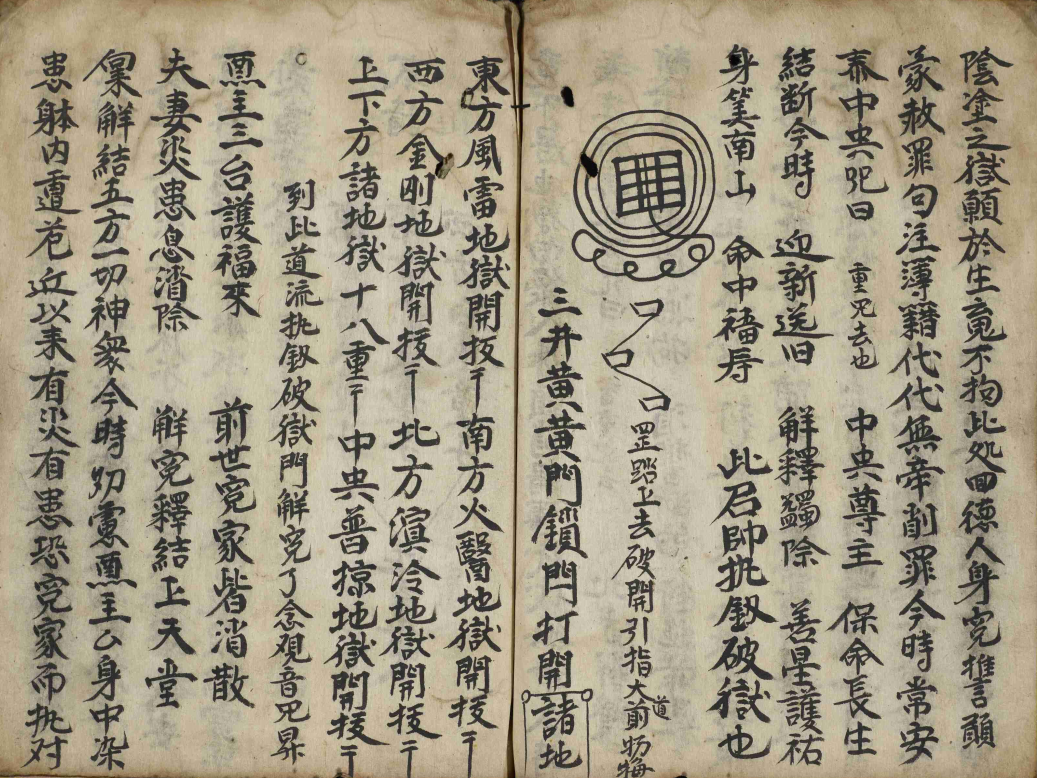 陰塗之獄願於生竟不拘此処回德人身冤讐言願
蒙赦罪句注薄籍代代無牽削罪今時常安
奉中央咒曰 重咒去也 中央尊主 保命長生
結断今時 迎新送旧 解釋蠲除 善星護祐
身筭南山 命中禧寿 此启帥执釼破獄也
罡踏上去破開引指大道前
三井黄黄門鎖門打開諸地
東方風雷地獄開扳〒南方火醫地獄開扳〒
西方金刚地獄開扳〒北方溟泠地獄開扳〒
上下方諸地獄十八重〒中央普掠地獄開扳〒
列比道流执釼破獄門解冤了念观音咒昇
恵主三台護福來 前世冤家皆消散
夫妻災患息消除 解冤釋結上天堂
稟解結五方一切神衆今時為恵主厶身中染
患躰内遭危近以来有災有患恐冤家而执对